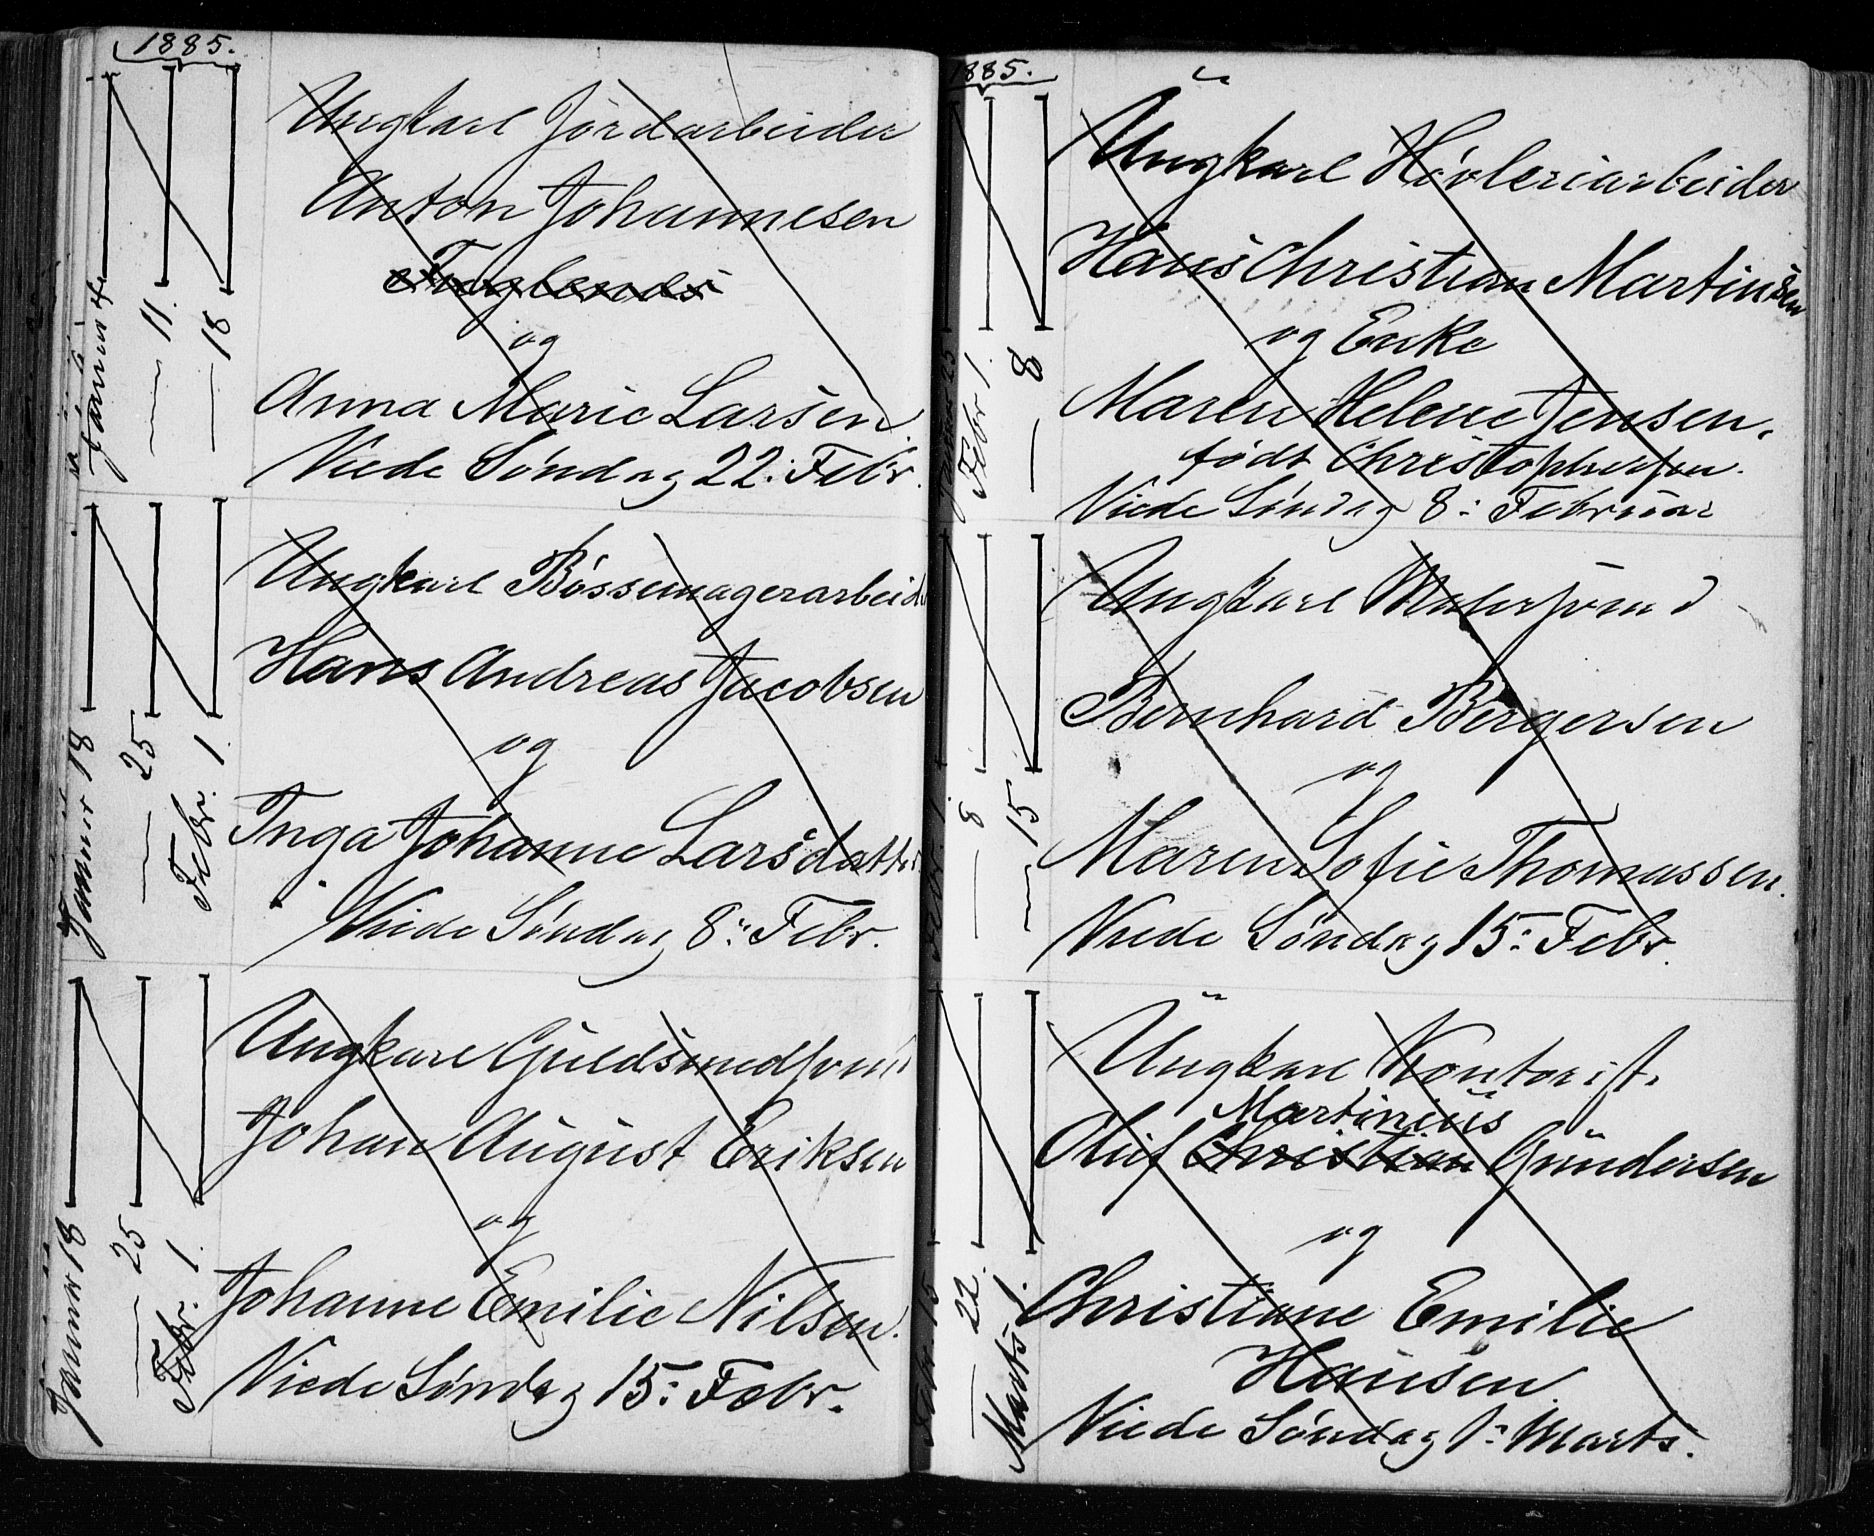 1885.
Januar 4
— 11.
— 18
Ungkarl Jordarbeider
Anton Johannesen
og
Anna Marie Larsen
Viede Søndag 22: Febr.
Januar 18
— 25
Febr. 1.
Ungkarl Bøssemagerarbeid
Hans Andreas Jacobsen
og
Inga Johanne Larsdatter
Viede Søndag 8: Febr.
Januar 18
— 25
Febr. 1.
Ungkarl Guldsmedsvend
Johan August Eriksen
og
Johanne Emilie Nilsen.
Viede Søndag 15: Febr.
1885.
Januar 25
Febr 1.
— 8
Ungkarl Høvleriarbeider
Hans Christian Martinsen
og Enke
Maren Helene Jensen,
født Christophersen.
Viede Søndag 8: Februar
Febr. 1.
— 8
— 15
Ungkarl Malersvend
Bernhard Bergersen
og
Maren Sofie Thomassen.
Viede Søndag 15: Febr.
Febr. 15
— 22.
Marts 1.
Ungkarl Kontorist.
Martinius
Oluf Christian Gundersen
og
Christiane Emilie
Hansen
Viede Søndag 1: Marts.